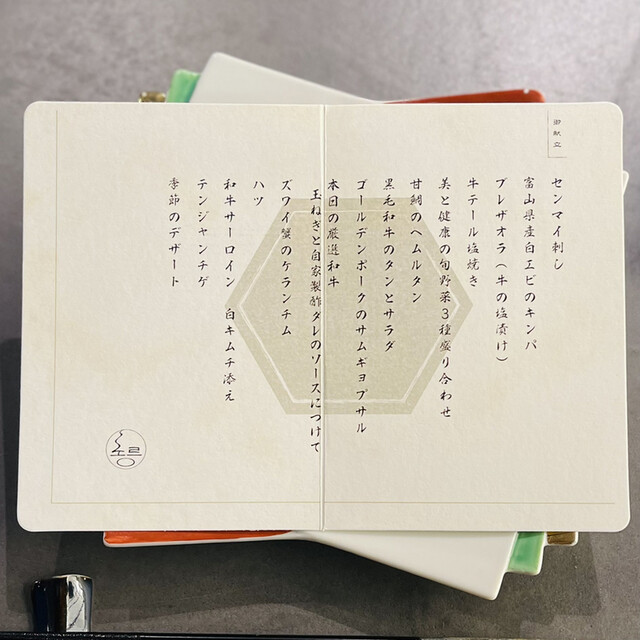 御献立
センマイ刺し
富山県産白エビのキンパ
ブレザオラ(牛の塩漬け)
牛テール塩焼き
美と健康の旬野菜3種盛り合わせ
甘鯛のヘムルタン
黒毛和牛のタンとサラダ
ゴールデンポークのサムギョプサル
本日の厳選和牛
玉ねぎと自家製酢ダレのソースにつけて
ズワイ蟹のケランチム
ハツ
和牛サーロイン 白キムチ添え
テンジャンチゲ
季節のデザート
노르